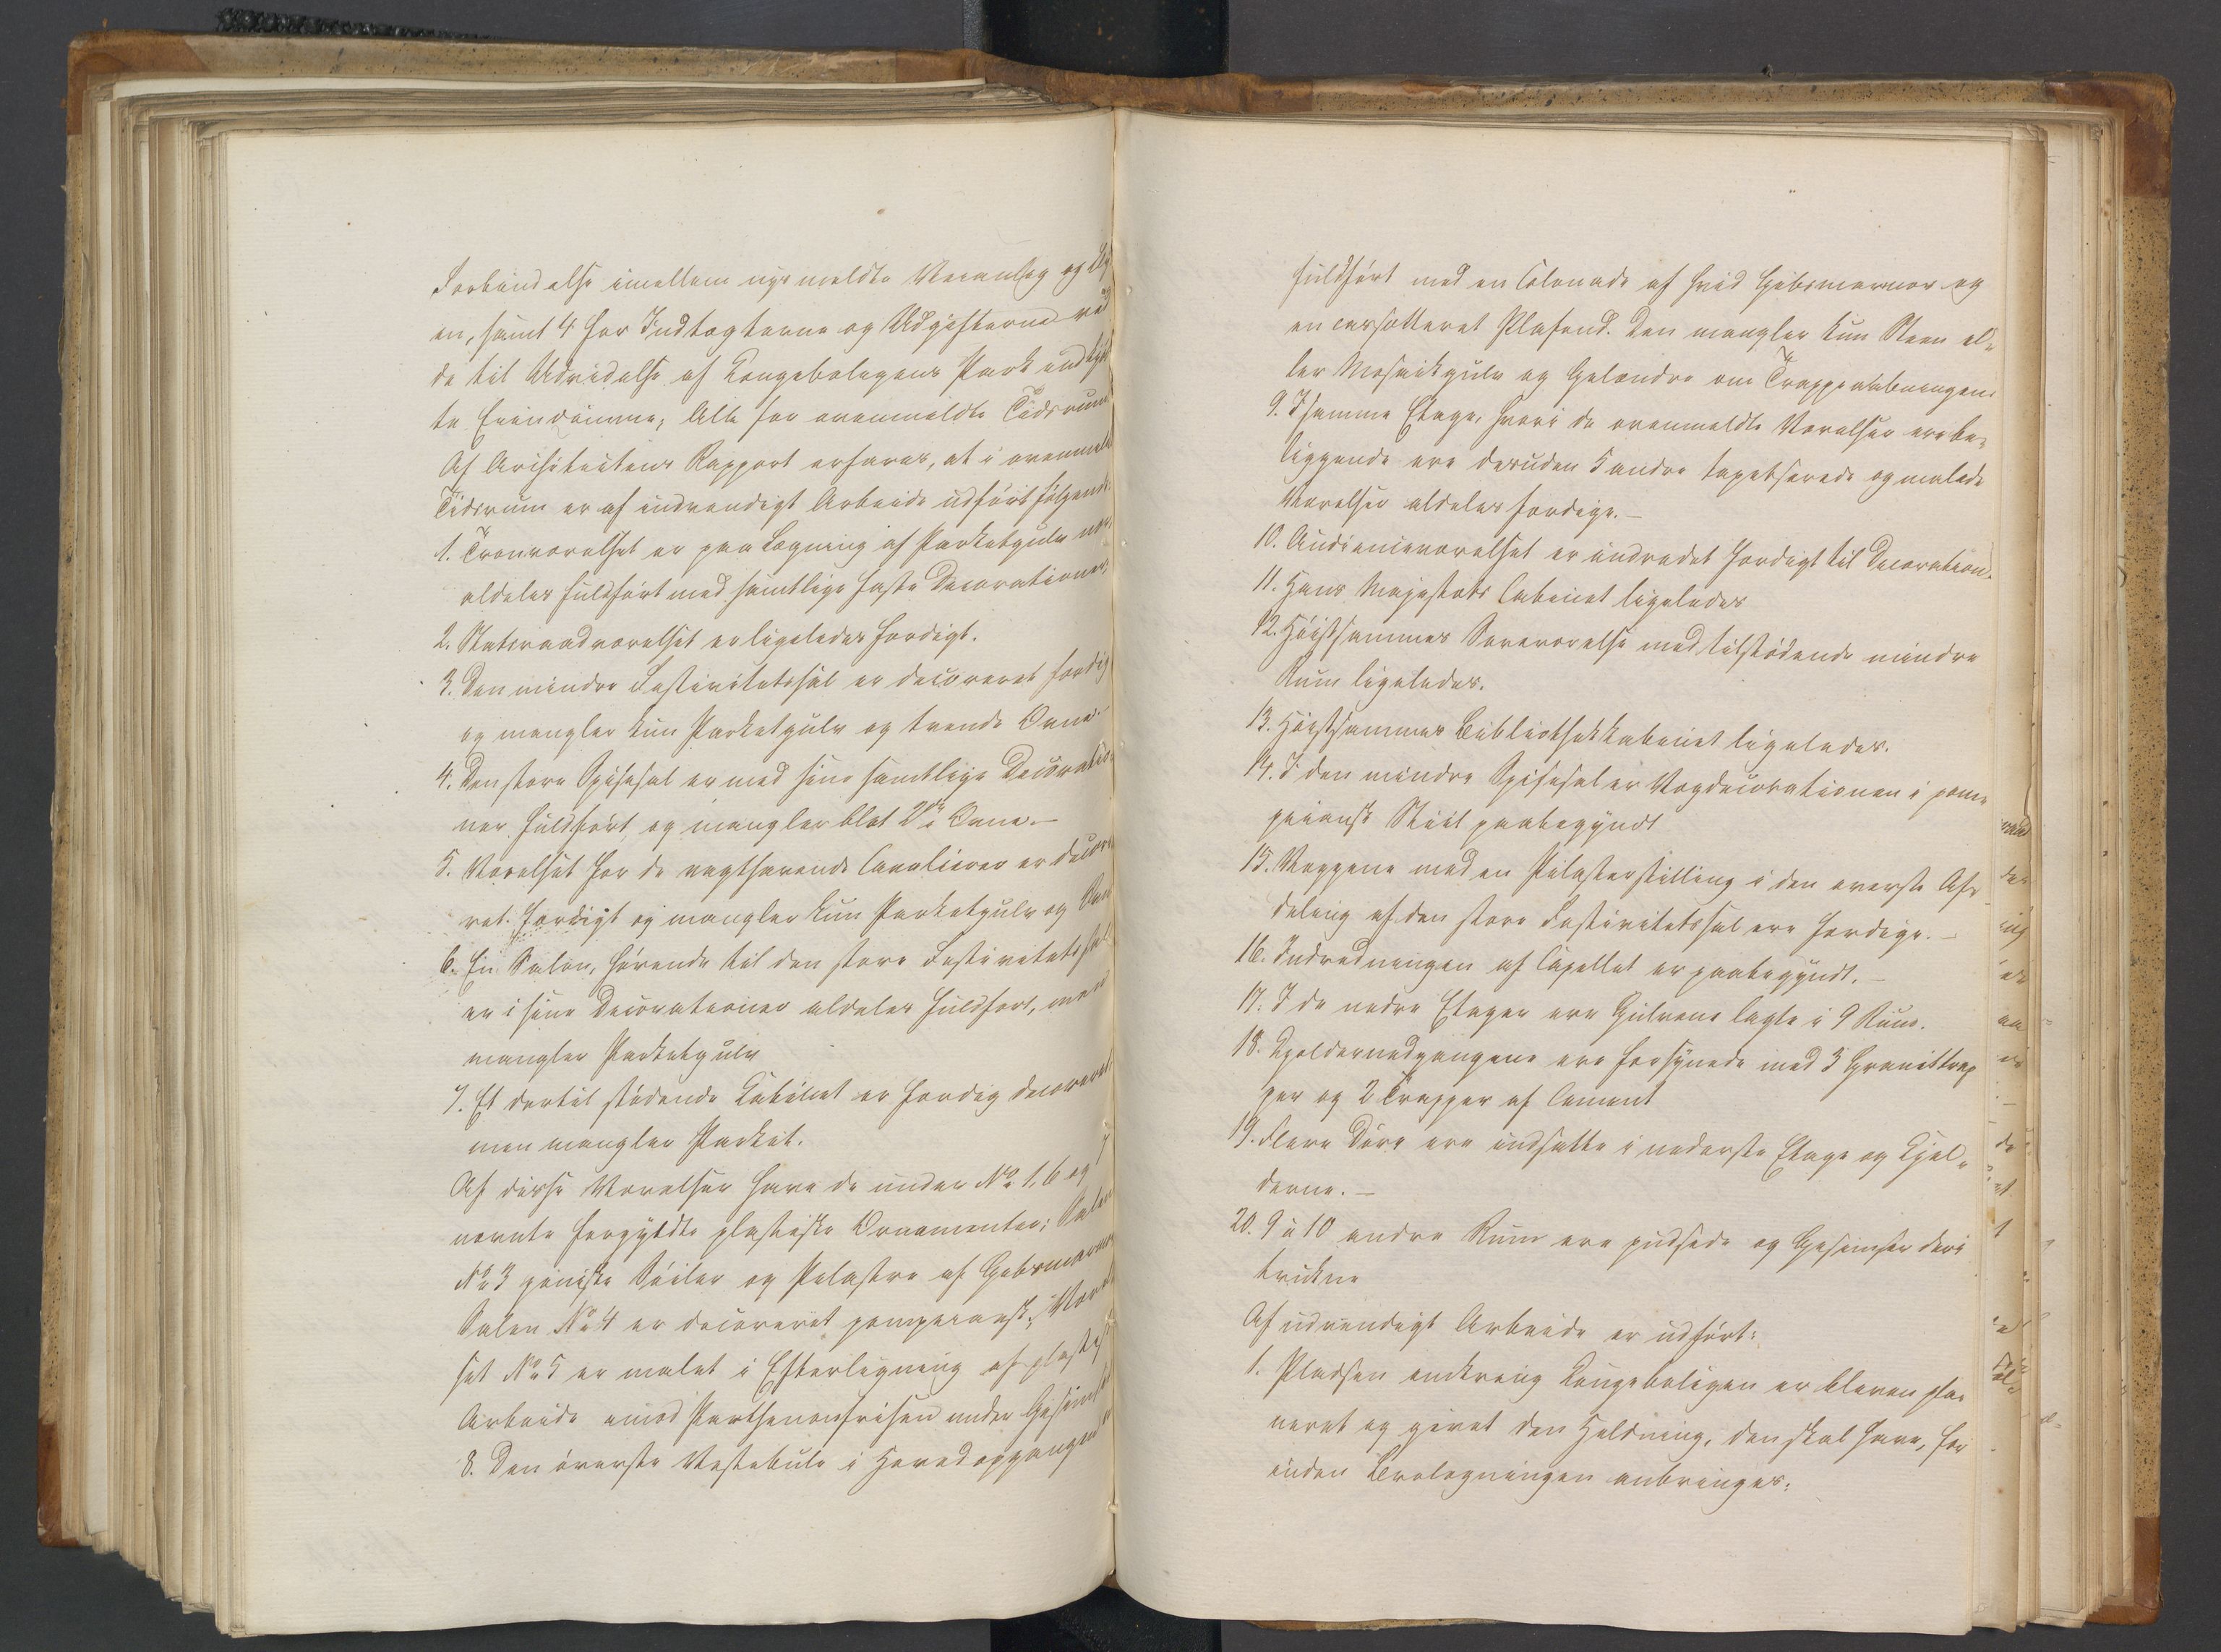 Forbindelse imellem nys meldte Veeanlæg og By
en, samt 4 for Indtægterne og Udgifterne ved
de til Udvidelse af Kongeboligens Park indkjöb
te Eiendomme; Alt for ovenmeldte Tidsrum.
Af Architectens Rapport erfares, at i ovenmeld
Tidsrum er af indvendigt Arbeide udfört fölgende:
1. Tronværelset er paa Lægning af Parketgulv nær
aldeles fuldfört med samtlige faste Decorationer.
2. Statsraadværelset er ligeledes færdigt.
3. Den mindre Festivitetssal er decoreret færdig
og mangler kun Parketgulv og tvende Ovne.
4. Den store Spisesal er med sine samtlige Decoratio-
ner fuldfört, og mangler blot 2de Ovne.-
5. Værelset for de vagthavende Cavalierer er decore
ret færdigt og mangler kun Parketgulv og Ovn
6. En Salon, hörende til den store Festivitetssal
er i sine Decorationer aldeles fuldfört, men
mangler Parketgulv
7. Et dertil stödende Kabinet er færdig decoreret
men mangler Parket.
Af disse Værelser have de under No 1, 6 og 7
nævnte forgyldte plastiske Ornamenter; Salen
No 3 joniske Söiler og Pilastre af Gibsmarmor
Salen No 4 er decoreret pompeiansk; Værel
set No 5 er malet i Efterligning af plastisk
Arbeide med Parthenonfrisen under Gesimsen
8. Den överste Vestibule i Hovedopgangen er
fuldfört med en Colonade af hvid Gibsmarmor og
en cassetteret Plafond. Den mangler kun Steen el-
ler Mosaikgulv og Gelændre om Trappeaabningen.
9. I samme Etage, hvori de ovenmeldte Værelser ere be-
liggende ere desuden 5 andre tapetserede og malede
Værelser aldeles færdige.-
10. Audienceværelset er indredet færdigt til Decoration.
11. Hans Majestæts Cabinet ligeledes
12. Höistsammes Soveværelse med tilstödende mindre
Rum ligeledes.
13. Höistsammes Bibliothekkabinet ligeledes.
14. I den mindre Spisesal er Vægdecorationen i pom-
peiansk Stiil paabegyndt
15. Væggene med en Pilasterstilling i den överste Af-
deling af den store Festivitetssal ere færdige.-
16. Indredningen af Capellet er paabegyndt.-
17. I de nedre Etager ere Gulvene lagte i 9 Rum.
18. Kjeldernedgangene ere forsynede med 3 Granittrap
per og 2 Trapper af Cement
19. Flere Döre ere indsatte i nederste Etage og Kjel-
derne.-
20. 9 à 10 andre Rum ere pudsede og Gesimser deri
trukne
Af udvendigt Arbeide er udfört:
1. Pladsen omkring Kongeboligen er bleven pla-
neret og givet den Heldning, den skal have, for
inden Brolægningen anbringes.